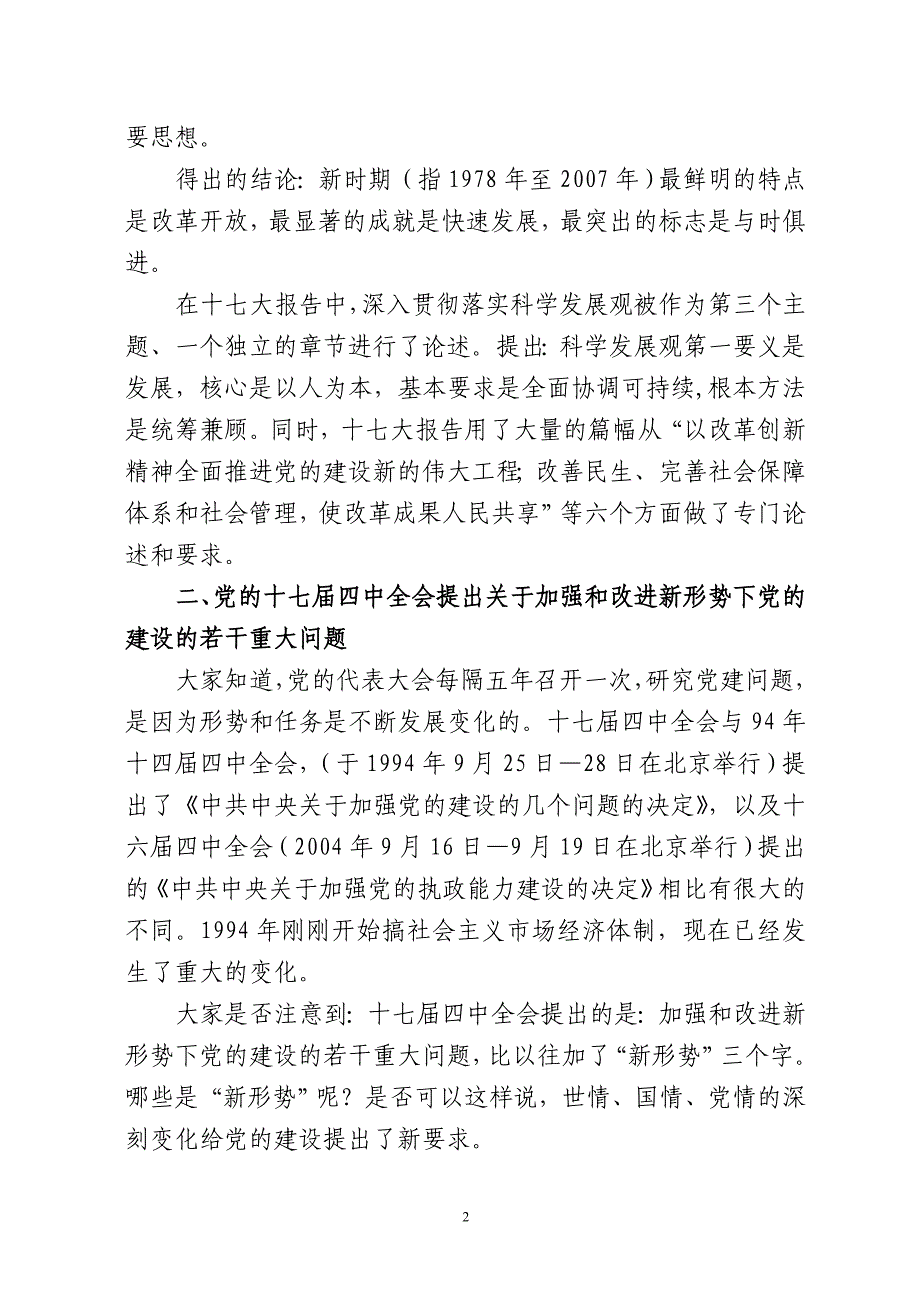 要思想。
得出的结论：新时期（指1978年至2007年）最鲜明的特点
是改革开放，最显著的成就是快速发展，最突出的标志是与时俱
进。
在十七大报告中，深入贯彻落实科学发展观被作为第三个主
题、一个独立的章节进行了论述。提出：科学发展观第一要义是
发展，核心是以人为本，基本要求是全面协调可持续,根本方法
是统筹兼顾。同时，十七大报告用了大量的篇幅从“以改革创新
精神全面推进党的建设新的伟大工程；改善民生、完善社会保障
体系和社会管理，使改革成果人民共享”等六个方面做了专门论
述和要求。
二、党的十七届四中全会提出关于加强和改进新形势下党的
建设的若干重大问题
大家知道，党的代表大会每隔五年召开一次，研究党建问题，
是因为形势和任务是不断发展变化的。十七届四中全会与94年
十四届四中全会，（于1994年9月25日—28日在北京举行）提
出了《中共中央关于加强党的建设的几个问题的决定》，以及十
六届四中全会（2004年9月16日—9月19日在北京举行）提出
的《中共中央关于加强党的执政能力建设的决定》相比有很大的
不同。1994年刚刚开始搞社会主义市场经济体制，现在已经发
生了重大的变化。
大家是否注意到：十七届四中全会提出的是：加强和改进新
形势下党的建设的若干重大问题，比以往加了“新形势”三个字。
哪些是“新形势”呢？是否可以这样说，世情、国情、党情的深
刻变化给党的建设提出了新要求。
2